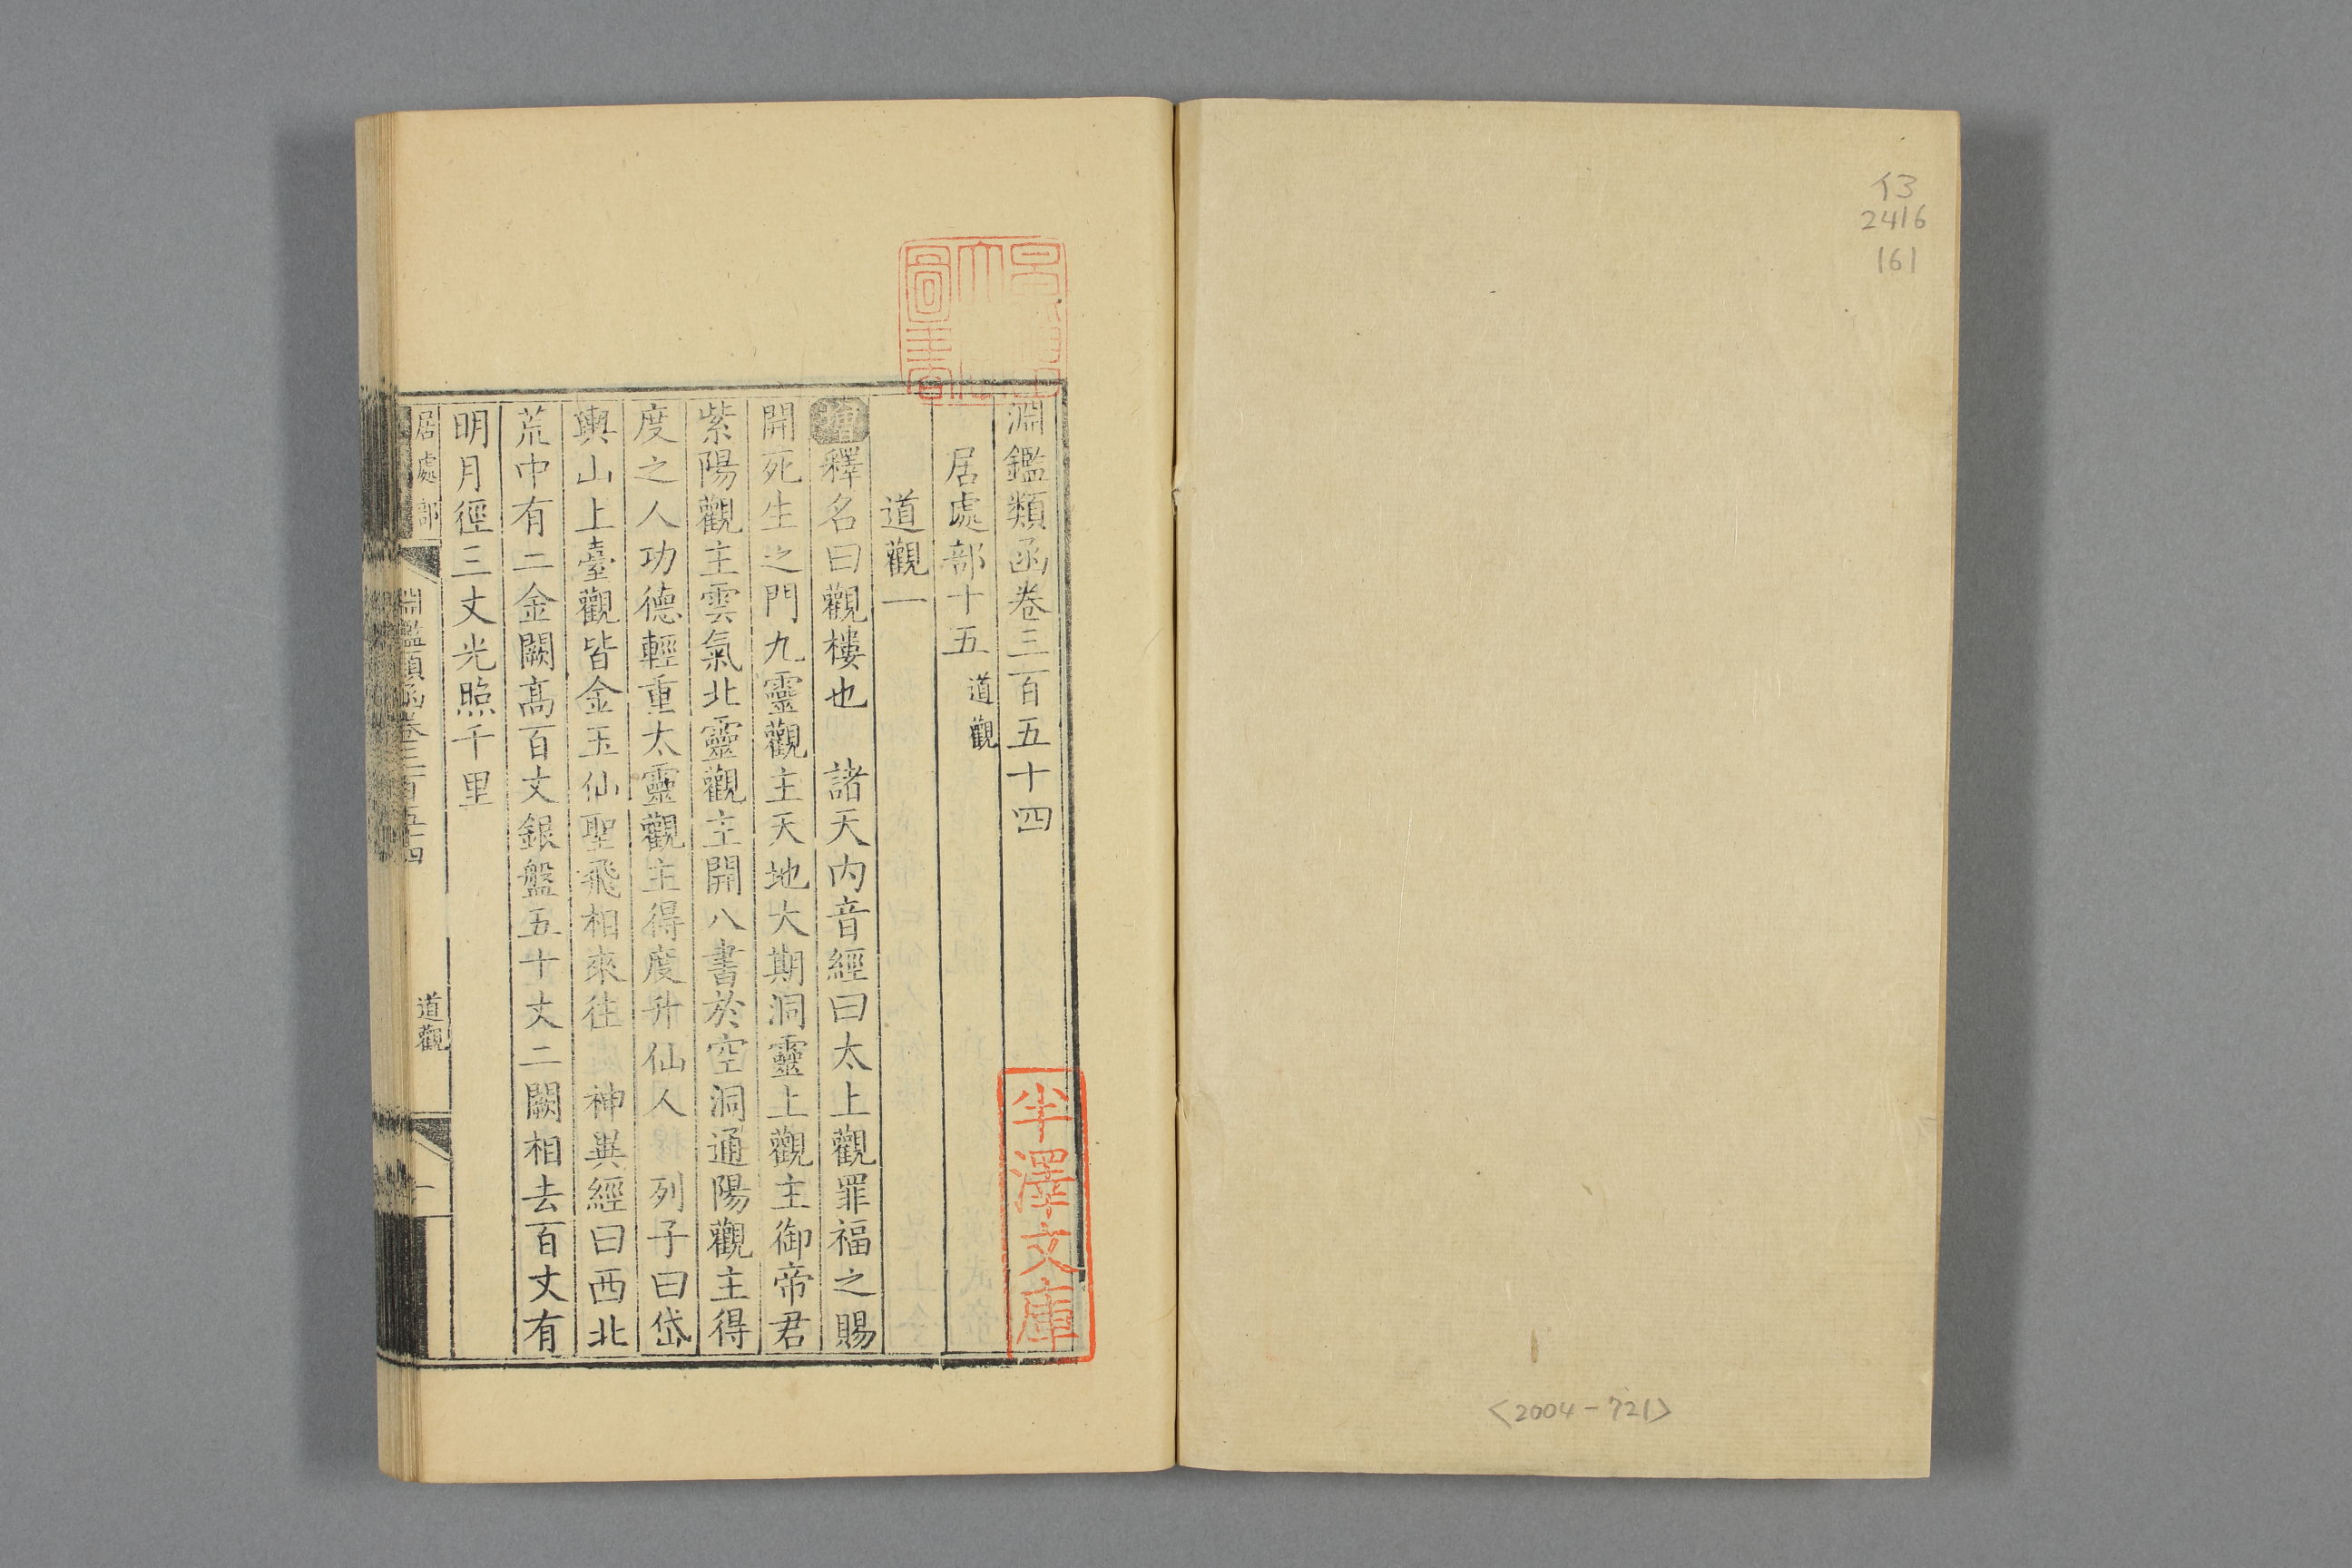 イ3
2416
161
<2004-721>
淵鑑類函卷三百五十四
居處部十五 道觀
道觀一
增釋名曰觀樓也 諸天内音經曰太上觀罪福之賜
開死生之門九靈觀主天地大期洞靈上觀主御帝君
紫陽觀主雲氣北靈觀主開八書於空洞通陽觀主得
度之人功德輕重太靈觀主得度升仙人 列子曰岱
輿山上臺觀皆金玉仙聖飛相來往 神異經曰西北
荒中有二金闕高百丈銀盤五十丈二闕相去百丈有
明月徑三丈光照千里
居處部 淵鑑類函卷三百五十四 道觀 一
半澤文庫